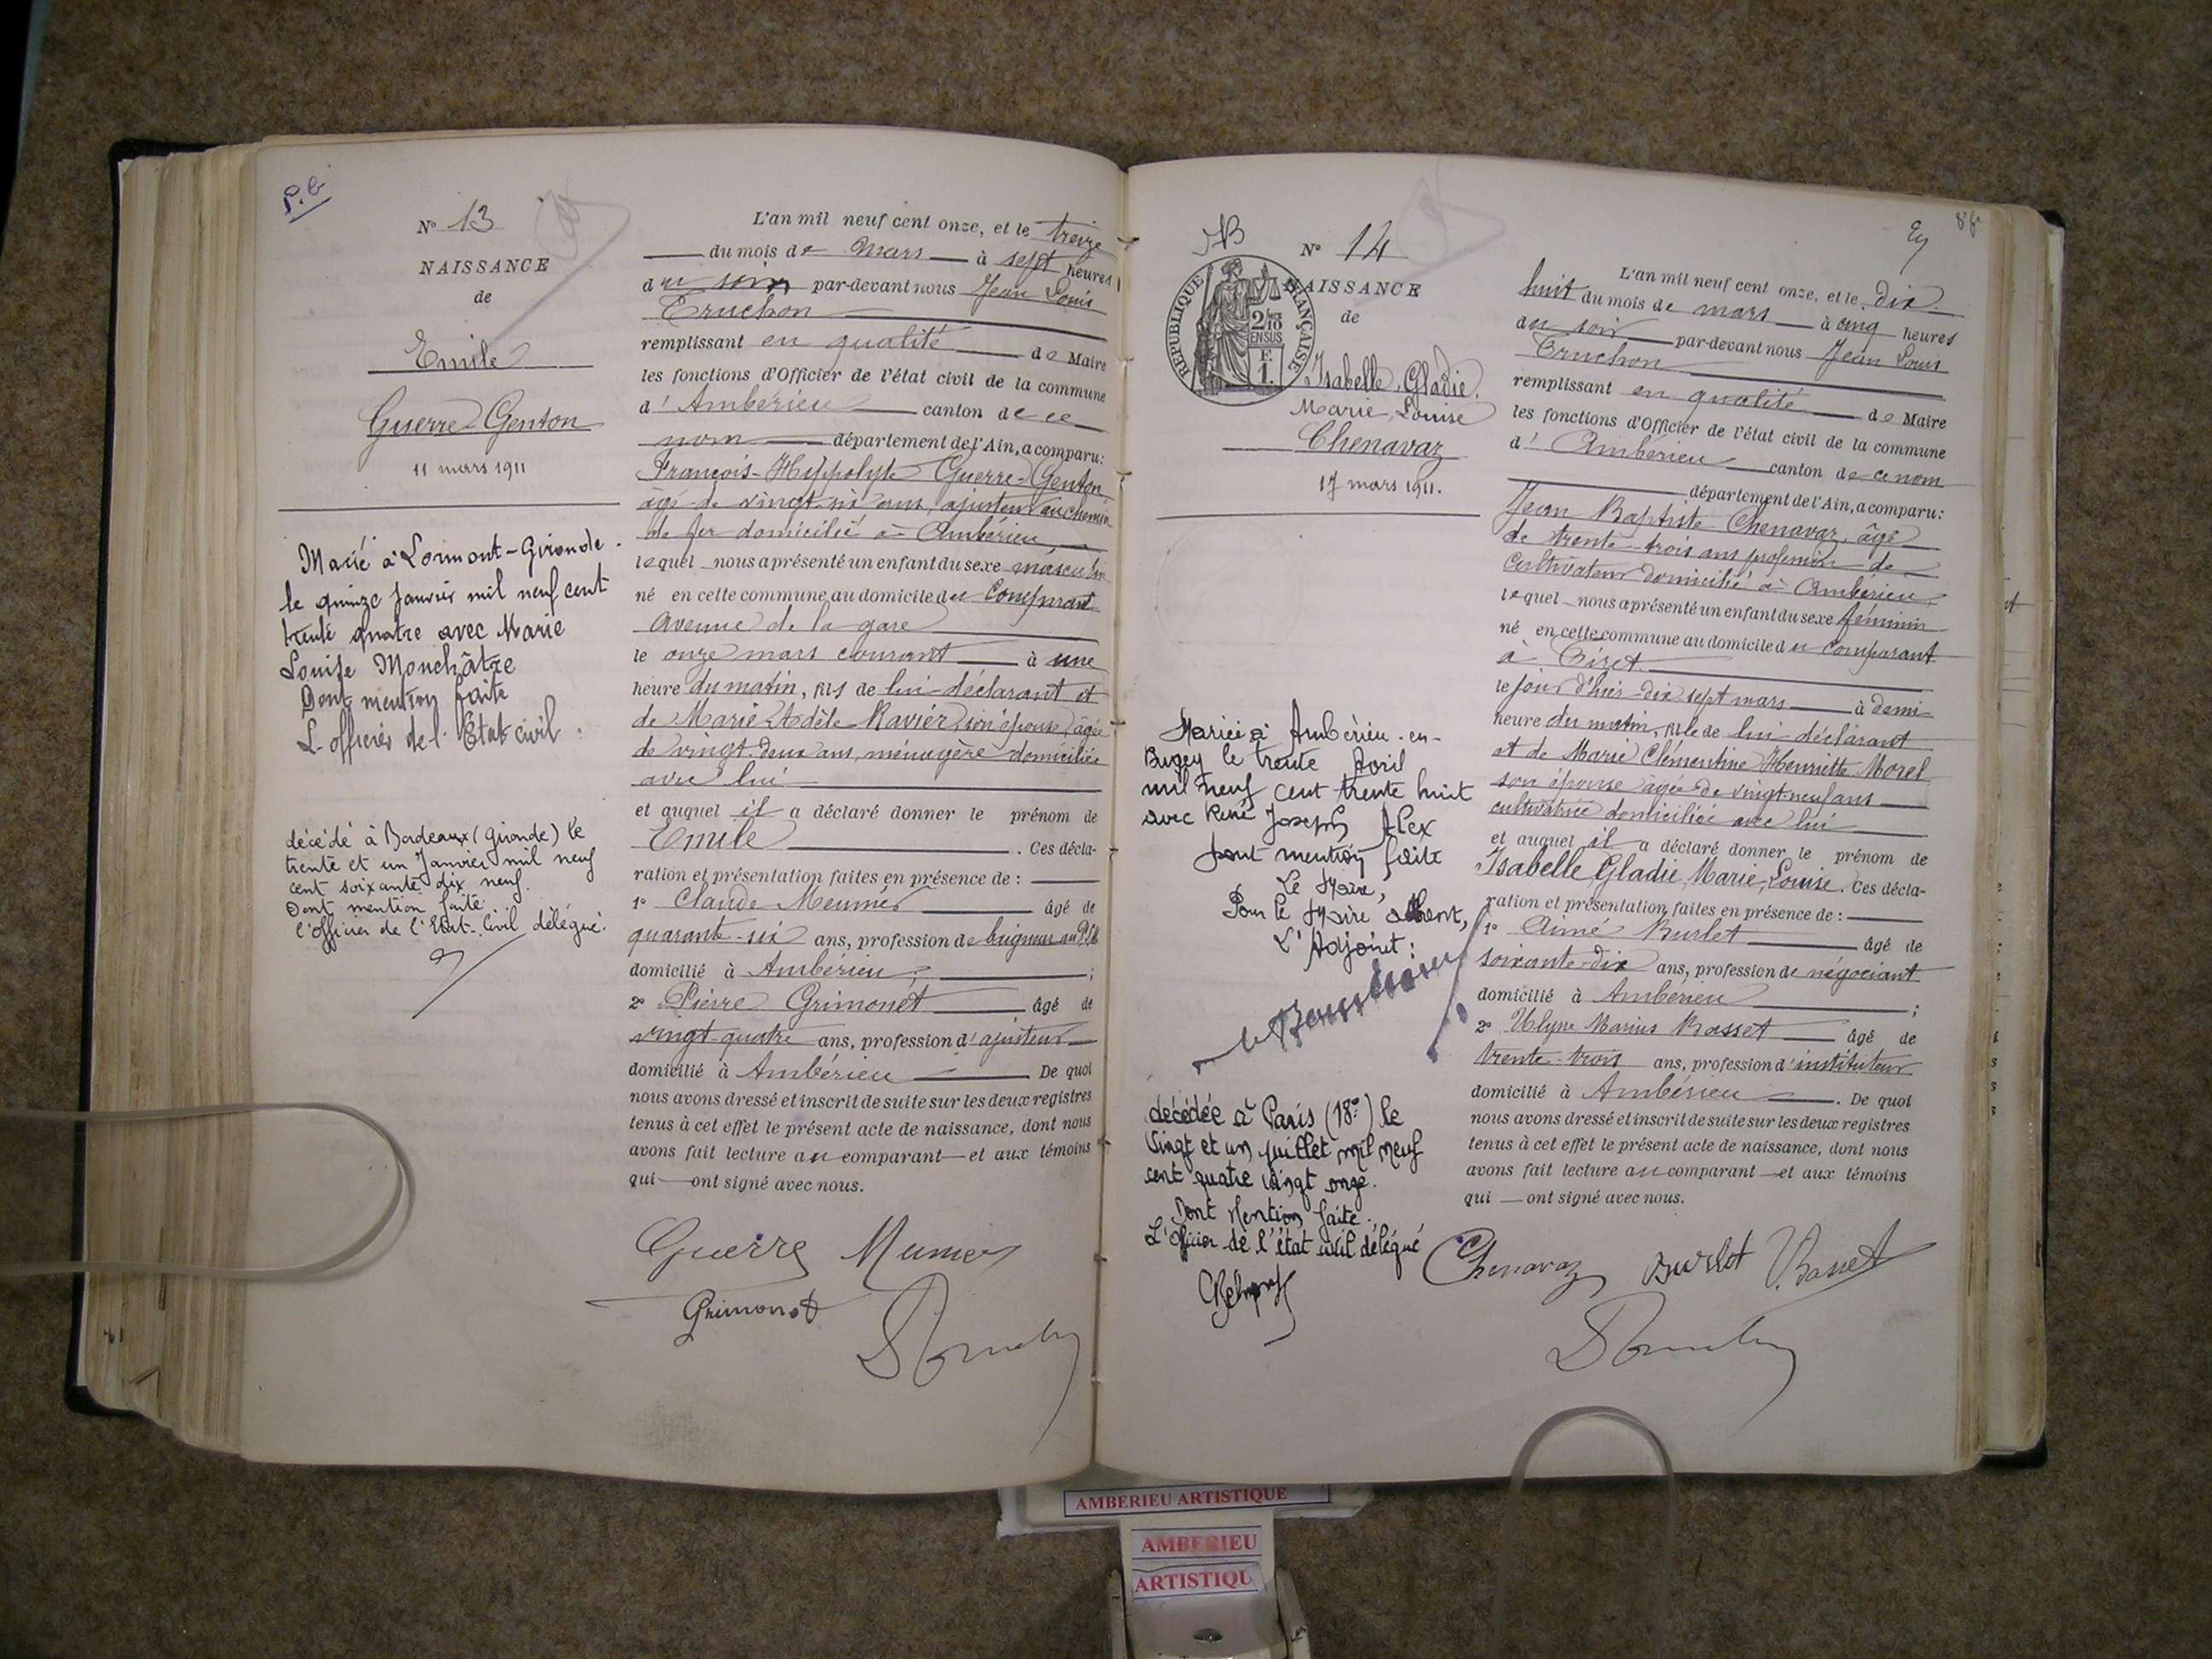 P.b
N° 13
NAISSANCE
de
Emile
Guerre-Genton
11 mars 1911
Marié à Lormont-Gironde
le quinze janvier mil neuf cent
trente quatre avec Marie
Louise Monchâtre
Dont mention faite
L'officier de l'Etat civil :
décédé à Bordeaux (Gironde) le
trente et un Janvier mil neuf
cent soixante dix neuf.
Dont mention faite.
l'officier de l'Etat-Civil délégué.
L'an mil neuf cent onze, et le treize
du mois de mars à sept heures
du soir par-devant nous Jean Louis
Truchon
remplissant en qualité de Maire
les fonctions d'Officier de l'état civil de la commune
d' Ambérieu canton de ce
nom département de l'Ain, a comparu:
François-Hyppolyte Guerre-Genton,
âgé de vingt-six ans, ajusteur au chemin
de fer domicilié à Ambérieu
lequel nous a présenté un enfant du sexe masculin
né en cette commune, au domicile du Comparant
avenue de la gare
le onze mars courant à une
heure du matin, fils de lui déclarant et
de Marie Adèle Ravier, son épouse, âgée
de vingt-deux ans, ménagère domiciliée
avec lui
et auquel il a déclaré donner le prénom de
Emile . Ces décla-
ration et présentation faites en présence de :
1° Claude Meunier âgé de
quarante-six ans, profession de
domicilié à Ambérieu ;
2° Pierre Grimonet âgé de
vingt-quatre ans, profession d'ajusteur
domicilié à Ambérieu De quoi
nous avons dressé et inscrit de suite sur les deux registres
tenus à cet effet le présent acte de naissance, dont nous
avons fait lecture au comparant et aux témoins
qui ont signé avec nous.
Guerre
Grimonet
N° 14
NAISSANCE
de
RÉPUBLIQUE FRANÇAISE
2/10
EN SUS
F.
1.
Isabelle, Gladie,
Marie, Louise
Chenavaz
17 mars 1911.
Mariée à Ambérieu-en-
Bugey le trente Avril
mil neuf cent trente huit
avec René Joseph Alex
Dont mention faite
Le Maire,
Pour le Maire absent,
L'Adjoint :
décédée à Paris (18e) le
vingt et un juillet mil neuf
cent quatre vingt onze.
Dont Mention faite.
L'Officier de l'état civil délégué
L'an mil neuf cent onze, et le dix
huit du mois de mars à cinq heures
du soir par-devant nous Jean Louis
Truchon
remplissant en qualité de Maire
les fonctions d'Officier de l'état civil de la commune
d' Ambérieu canton de ce nom
département de l'Ain, a comparu:
Jean Baptiste Chenavaz, âgé
de trente-trois ans profession de
Cultivateur domicilié à Ambérieu,
lequel nous a présenté un enfant du sexe féminin
né en cette commune au domicile du comparant
à Tiret
le jour d'hier dix sept mars à demi
heure du matin, fille de lui déclarant
et de Marie Clémentine Henriette Morel
son épouse âgée de vingt neuf ans
cultivatrice domiciliée avec lui
et auquel il a déclaré donner le prénom de
Isabelle, Gladie, Marie, Louise. Ces décla-
ration et présentation faites en présence de :
1° Aimé Burlet âgé de
soixante-dix ans, profession de négociant
domicilié à Ambérieu ;
2° Ulysse Marius Basset âgé de
trente-trois ans, profession d'instituteur
domicilié à Ambérieu . De quoi
nous avons dressé et inscrit de suite sur les deux registres
tenus à cet effet le présent acte de naissance, dont nous
avons fait lecture au comparant et aux témoins
qui ont signé avec nous.
Chenavaz Burlet Basset
AMBERIEU ARTISTIQUE
AMBERIEU
ARTISTIQU